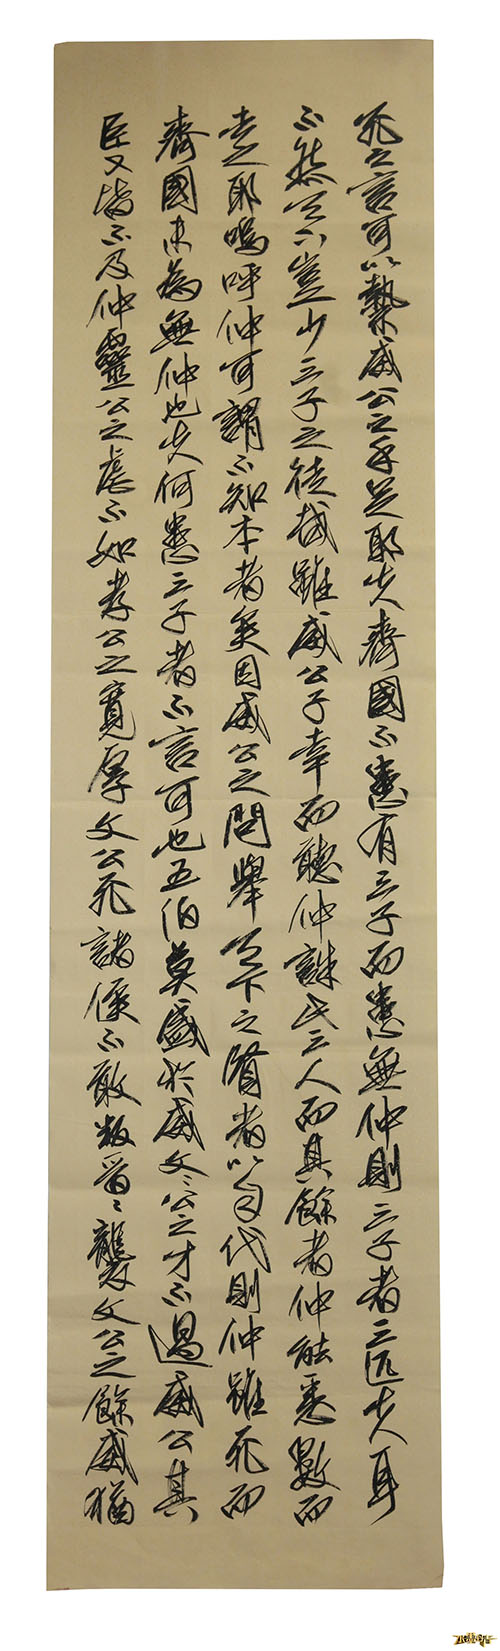 死之言可以縶威公之手足耶夫齊國不患有三子而患無仲則三子者三匹夫耳
不然天下豈少三子之徒哉雖威公子幸而聽仲誅此三人而其餘者仲能悉數而
去之耶嗚呼仲可謂不知本者矣因威公之問舉天下之賢者以自代則仲雖死而
齊國未為無仲也夫何患三子者不言可也五伯莫盛於威文〻公之才不過威公其
臣又皆不及仲靈公之虐不如孝公之寬厚文公死諸侯不敢叛晉〻襲文公之餘威猶